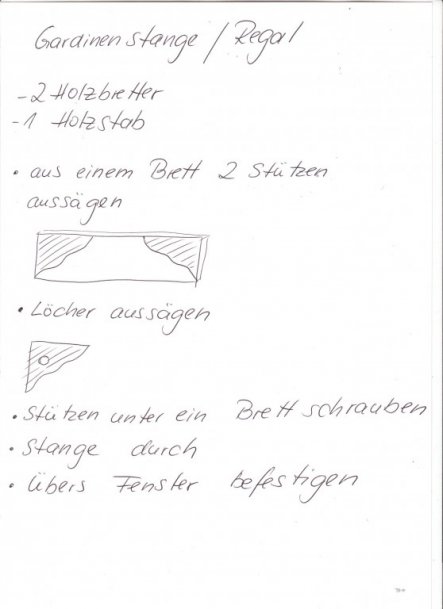 Gardinenstange / Regal
- 2 Holzbretter
- 1 Holzstab
• aus einem Brett 2 Stützen
aussägen
• Löcher aussägen
• Stützen unter ein Brett schrauben
• Stange durch
• übers Fenster befestigen